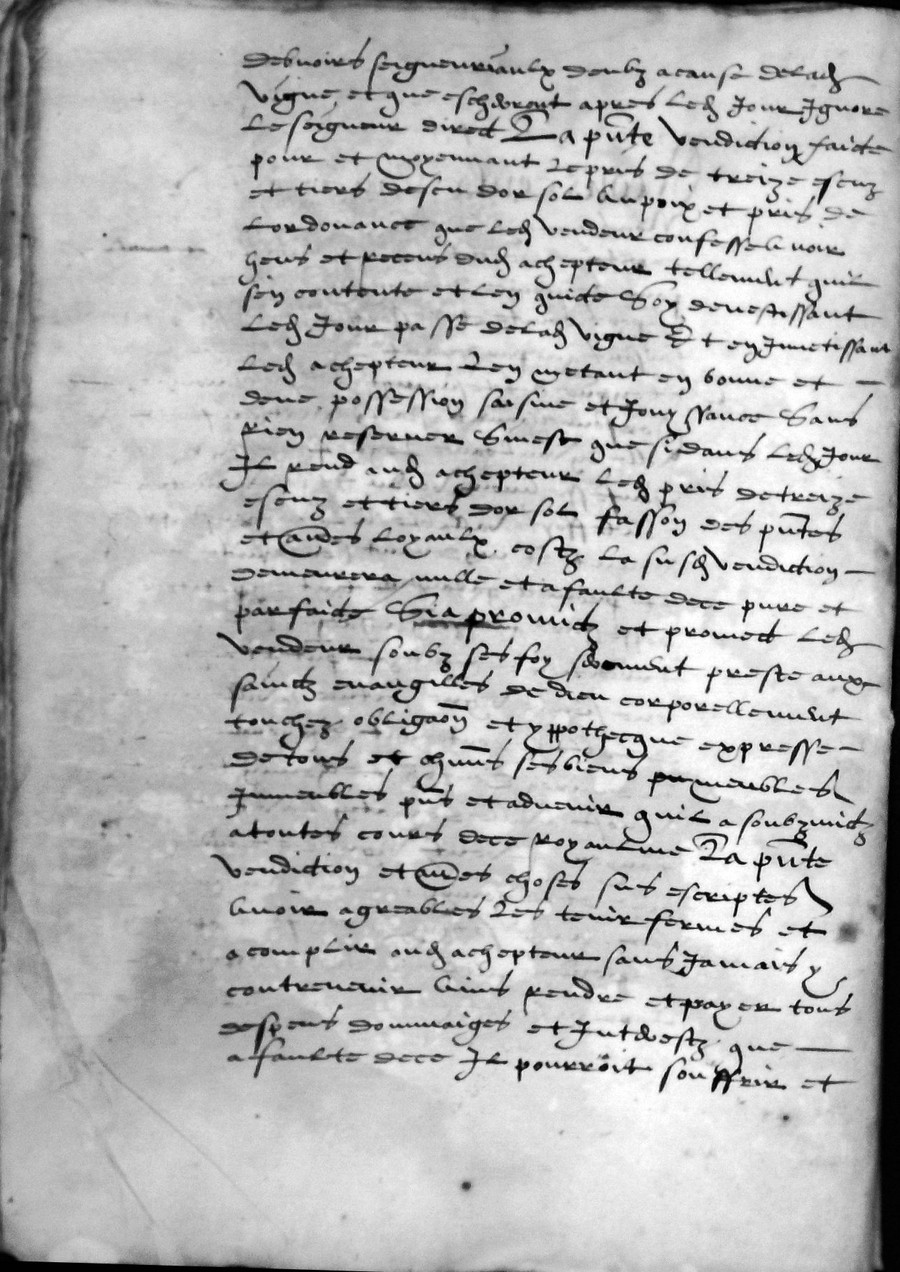 debvoirs seigneuriaulx deubz a cause de lad
vigne et que eschêront apres led Jour Ignore
le seigneur direct La pñte vendiction faicte
pour et moyennant le pris de treize escuz
et tiers descu dor sol au poix et pris de
lordonance que led vendeur confesse avoir
heus et receus dud achepteur tellement quil
sen contente et len quicte Soy devestissant
led Jour passe de lad vigne Et en Investissant
led achepteur Len metant en bonne et
deue possession saisine et Jouyssance Sans
rien reserver Sinest que si dans led Jour
Il rend aud achepteur led pris de treize
escuz et tiers dor sol fasson des pñtes
et aũes loyaulx costz la susd vendiction
demeurera nulle et a faulte de ce pure et
parfaicte Si a promictz et promect led
vendeur soubz ses foy serement preste aux
sainctz evangilles de dieu corporellement
touchez obligaõn et yppothecque expresse
de tous et chũns ses biens meubles
Immeubles pñs et advenir quil a soubzmictz
a toutes cours de ce royaulme La pñte
vendiction et aũes choses sus escriptes
avoir agreables Les tenir fermes et
acomplir aud achepteur sans Jamais y
contrevenir ains rendre et payer tous
despens dommaiges et Interestz que
a faulte de ce Il pourroit souffrir et